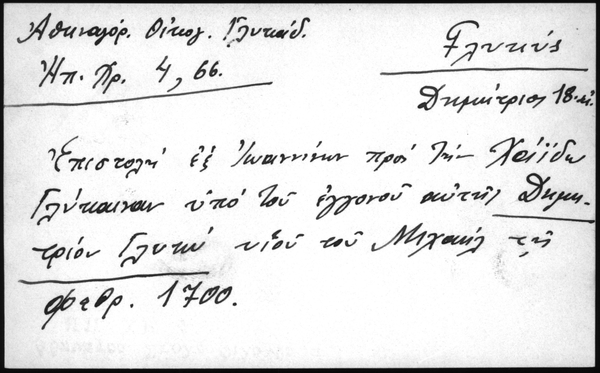 Ἀθηναγόρ. Οἰκογ. Γλυκάδ.
Ἠπ. Χρ. 4, 66.
Γλυκύς
Δημήτριος 18. αἰ.
Ἐπιστολή ἐξ Ἰωαννίνων πρός τήν Χάϊδω
Γλύκαιναν ὑπό τοῦ ἐγγονοῦ αὐτῆς Δημη-
τρίου Γλυκύ υἱοῦ τοῦ Μιχαήλ τῇ
φεβρ. 1700.